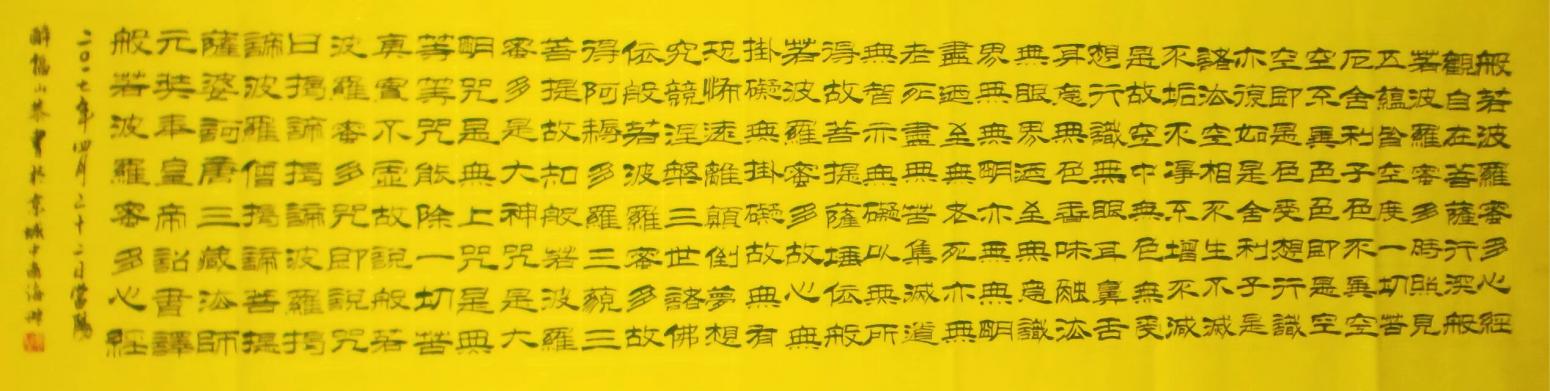 般若波羅蜜多心經
觀自在菩薩行深般
若波羅蜜多時照見
五蘊皆空度一切苦
厄舍利子色不異空
空不異色色即是空
空即是色受想行識
亦復如是舍利子是
諸法空相不生不滅
不垢不淨不增不減
是故空中無色無受
想行識無眼耳鼻舌
身意無色香味觸法
無眼界乃至無意識
界無無明亦無無明
盡乃至無老死亦無
老死盡無苦集滅道
無智亦無礙以無所
得故菩提薩埵依般
若波羅蜜多故心無
掛礙無掛礙故無有
恐怖遠離顛倒夢想
究竟涅槃三世諸佛
依般若波羅蜜多故
得阿耨多羅三藐三
菩提故知般若波羅
蜜多是大神咒是大
明咒是無上咒是無
等等咒能除一切苦
真實不虛故說般若
波羅蜜多咒即說咒
曰揭諦揭諦波羅揭
諦波羅僧揭諦菩提
薩婆訶唐三藏法師
元奘奉皇帝詔書譯
般若波羅蜜多心經
二〇一七年四月二十二日當陽
醉山恭書於京城中南海畔